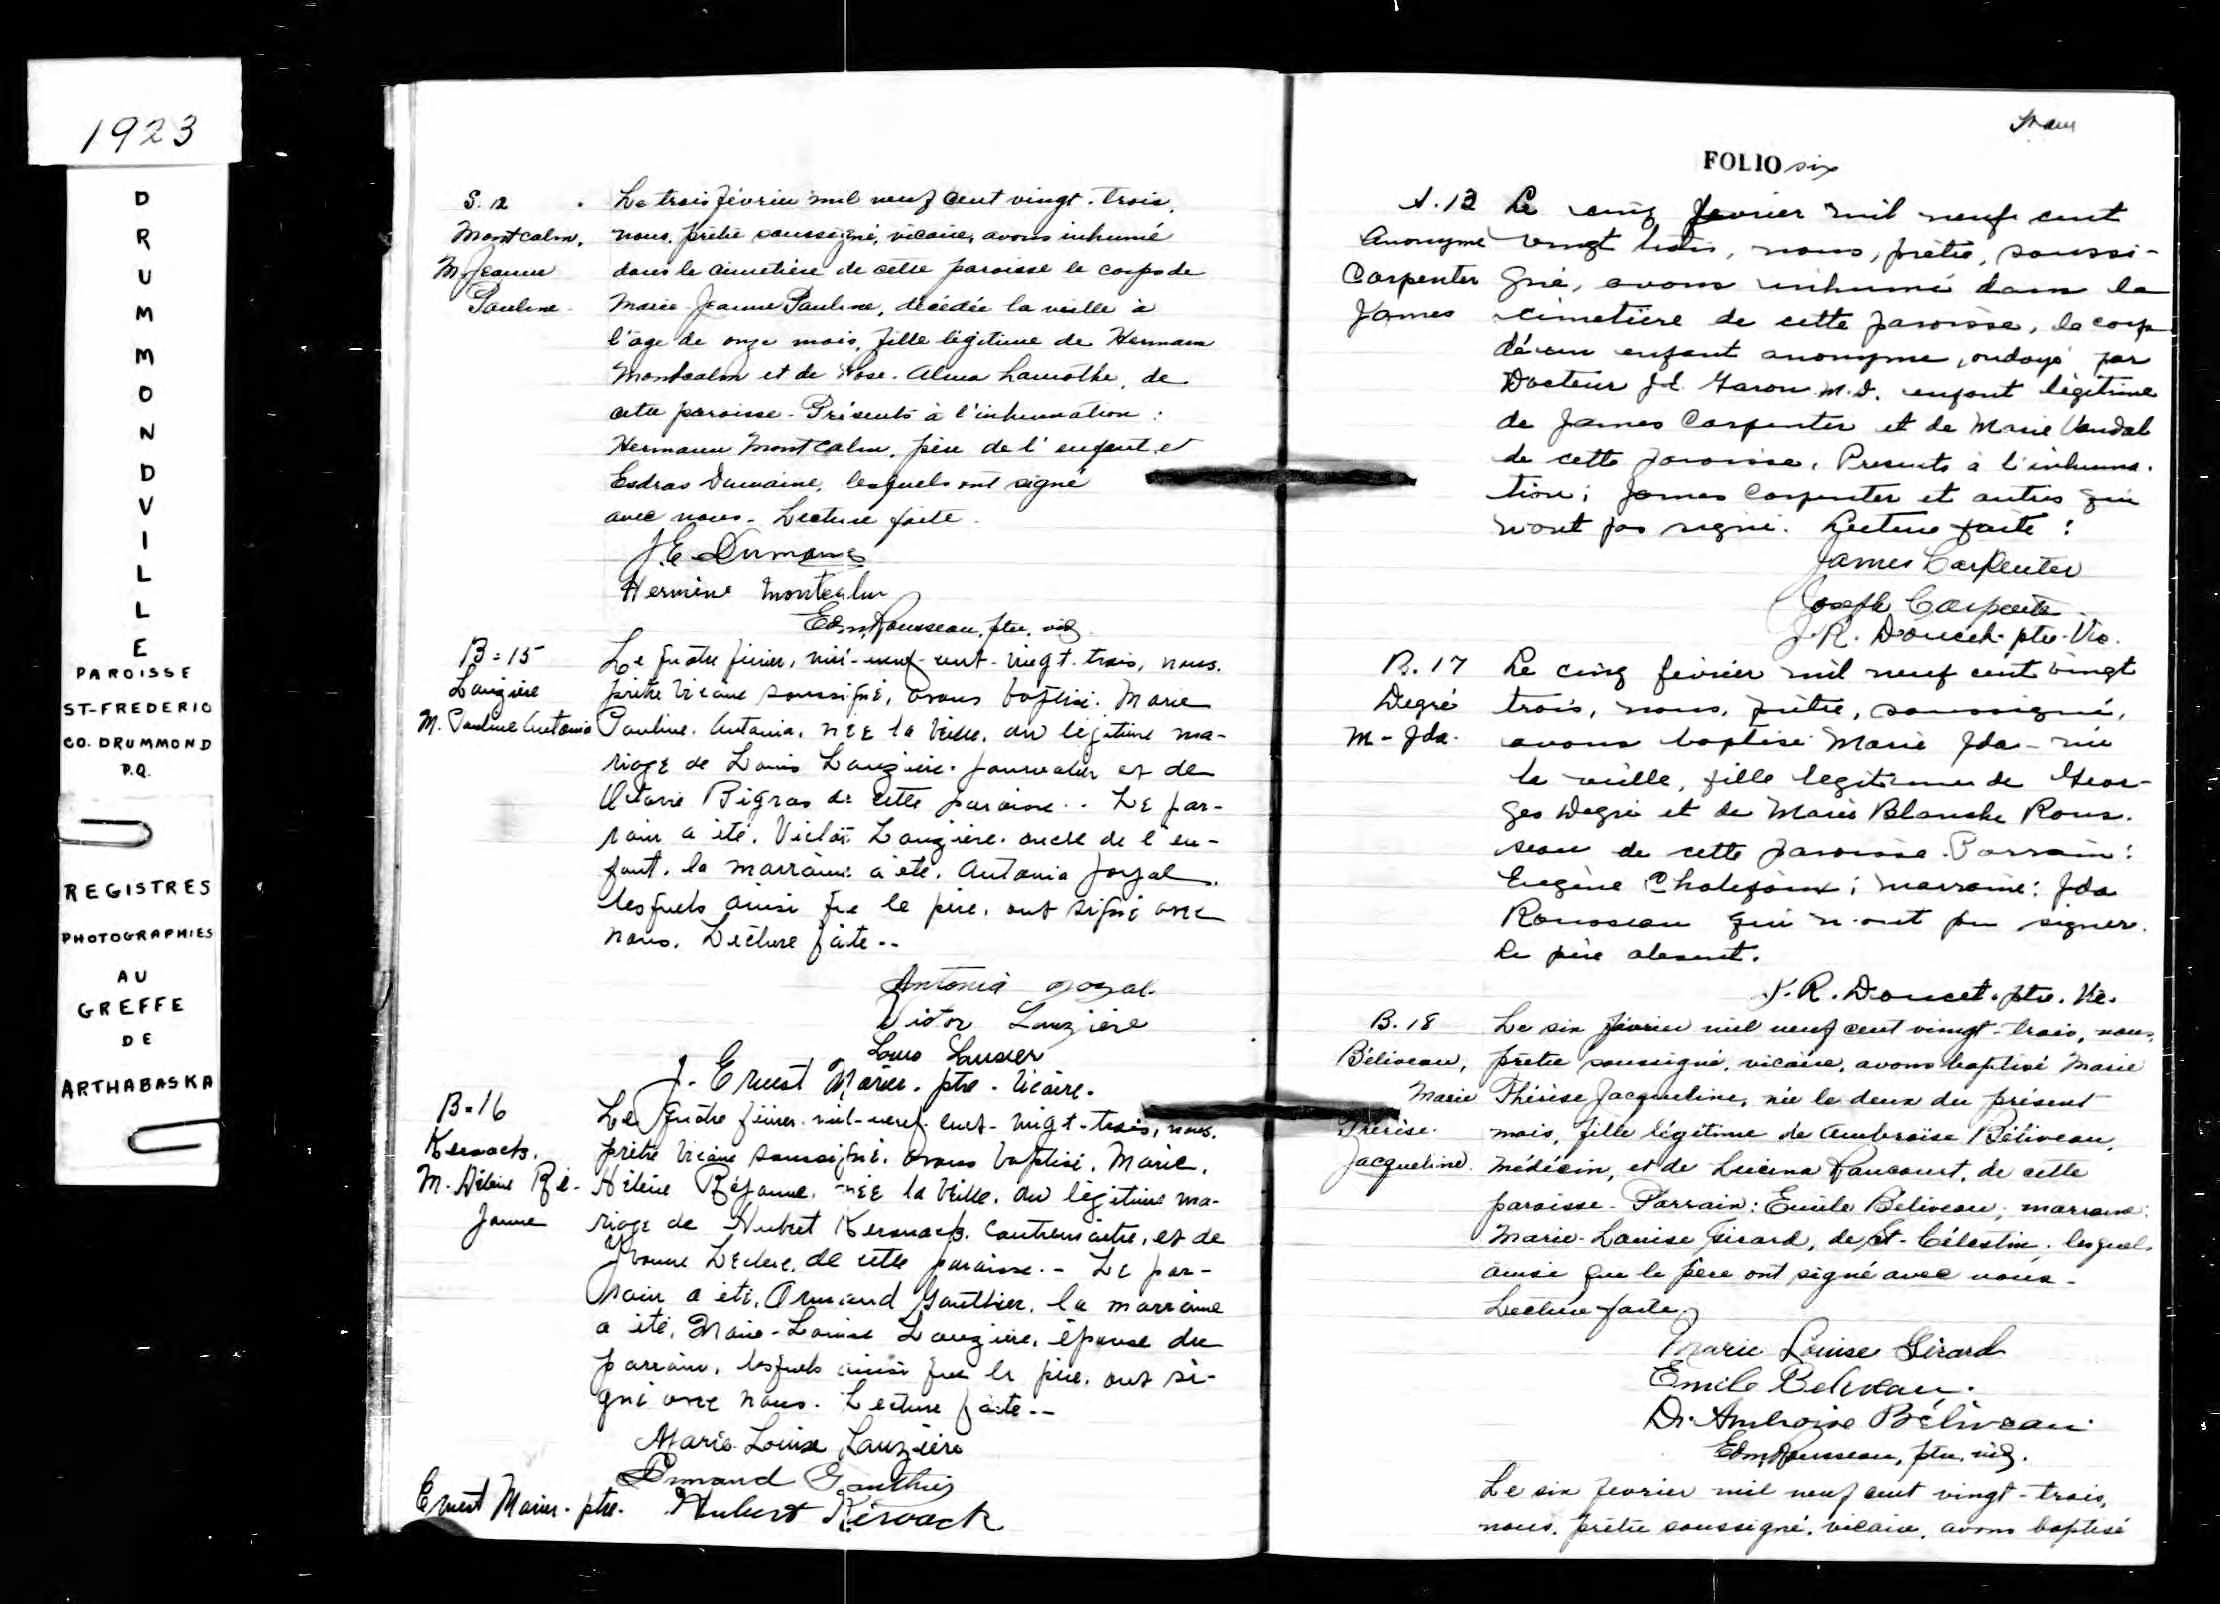 1923
DRUMMONDVILLE
PAROISSE
ST-FREDERIC
CO. DRUMMOND
P.Q.
REGISTRES
PHOTOGRAPHIES
AU
GREFFE
DE
ARTHABASKA
S. 12
Montcalm,
M. Jeanne
Pauline
Le trois février mil neuf cent vingt-trois,
nous, prêtre soussigné, vicaire, avons inhumé
dans le cimetière de cette paroisse le corps de
Marie-Jeanne Pauline, décédée la veille à
l'âge de onze mois, fille légitime de Hermann
Montcalm et de Rose-Alma Lamothe, de
cette paroisse - Présents à l'inhumation :
Hermann Montcalm, père de l'enfant et
Esdras Dumaine, lesquels ont signé
avec nous - Lecture faite.
J. E.
Montcalm
Edm. Rousseau, ptre, vic.
B = 15
Lauzière
M. Pauline Antonia
Le quatre février, mil-neuf-cent-vingt-trois, nous,
prêtre vicaire soussigné, avons baptisé, Marie
Pauline, Antonia, née la veille, du légitime ma-
riage de Louis Lauzière, journalier et de
Bigras de cette paroisse. - Le par-
rain a été, Victor Lauzière, oncle de l'en-
fant, la marraine a été, Antonia Joyal
lesquels ainsi que le père, ont signé avec
nous. Lecture faite --
Antonia Joyal
Victor Lauzière
Louis Lauzier
J. Ernest Marier. ptre. Vicaire.
B=16
M. Hélène Ré-
janne
Le quatre février mil-neuf-cent-vingt-trois, nous,
prêtre vicaire soussigné, avons baptisé, Marie,
Hélène Réjanne, née la veille, du légitime ma-
riage de Hubert contremaître, et de
Yvonne Leclerc, de cette paroisse. - Le par-
rain a été, Armand Gauthier, la marraine
a été, Marie-Louise Lauzière, épouse du
parrain, lesquels ainsi que le père, ont si-
gné avec nous. Lecture faite --
Marie-Louise Lauzière
Armand Gauthier
Ernest Marier. ptre. Hubert Kérouack
FOLIO six
S. 13
Anonyme
Carpenter
James
Le cinq février mil neuf cent
vingt trois, nous, prêtre, soussi-
gné, avons inhumé dans le
cimetière de cette paroisse, le corp
d'un enfant anonyme, ondoyé par
Docteur Garon M.D. enfant légitime
de James Carpenter et de Marie Vandal
de cette paroisse. Presents à l'inhuma-
tion; James Carpenter et autres qui
n'ont pas signé. Lecture faite :
James Carpenter
Joseph Carpenter
J. R. Doucet ptre. Vic.
B. 17
Degré
M - Ida.
Le cinq février mil neuf cent vingt
trois, nous, prêtre, soussigné,
avons baptisé Marie Ida - née
la veille, fille legitime de Geor-
ges Degré et de Marie Blanche Rous-
seau de cette paroisse. Parrain :
Eugène Chalifoux ; marraine : Ida
Rousseau qui n'ont pu signer.
le père absent.
J. R. Doucet. ptre. Vic.
B. 18
Béliveau,
Marie
Thérèse
Jacqueline.
Le six février mil neuf cent vingt-trois, nous,
prêtre soussigné, vicaire, avons baptisé Marie
Thérèse Jacqueline, née le deux du présent
mois, fille légitime de Ambroise Béliveau,
médécin, et de Lucina Vaucourt, de cette
paroisse - Parrain : Emile Béliveau; marraine :
Marie-Louise Girard, de St-Célestin, lesquels
ainsi que le père ont signé avec nous -
Lecture faite.
Marie Louise Girard
Emile Béliveau.
Dr. Ambroise Béliveau
Edm. Rousseau, ptre, vic.
Le six février mil neuf cent vingt-trois,
nous, prêtre soussigné, vicaire, avons baptisé